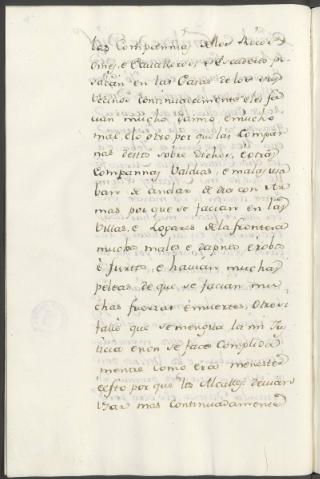 las Compannias dellos Ricos
omes, e Cavalleros, e Escuderos po
savan en las Casas de los sus
vecinos continuadamente e les fa
cian mucho danno e mucho
mal, e lo otro por que las Compan
nas destos sobre dichos, e otras
Compannas Valdias, e malas usa
ban de andar de dia con Ar
mas por que se facian en las
Villas, e Logares de la frontera
muchos males e dapnos e robos
e furtos, e havian muchas
peleas de que se facian mu
chas fuerzas e muertes, Otrosi
fallé que se mengua la mi Jus
ticia e non se face complida
mente como era menester
e esto por que los Alcalles devian
usar mas continuadamente